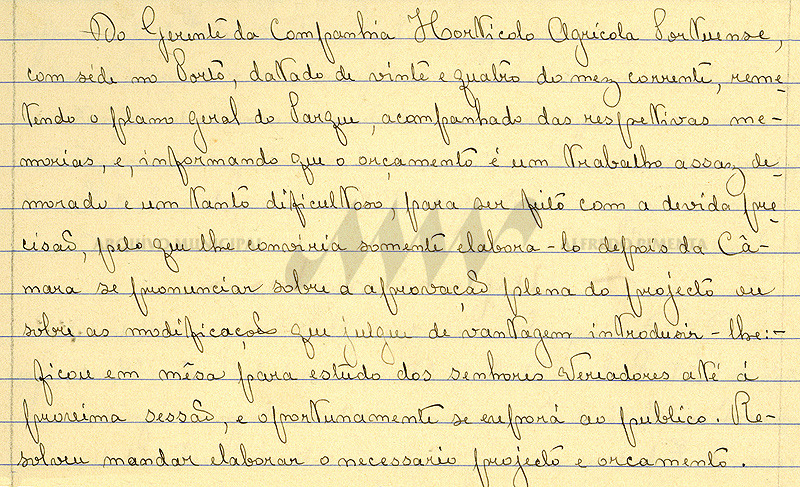 Do Gerente da Companhia Horticolo Agricola Portuense,
com séde no Porto, datado de vinte e quatro do mez corrente, reme-
tendo o plano geral do Parque, acompanhado das respetivas me-
morias, e, informando que o orçamento é um trabalho assaz de-
morado e um tanto dificultoso, para ser feito com a devida pre-
cisão, pelo que lhe conviria somente elabora-lo depois da Câ-
mara se pronunciar sobre a aprovação plena do projecto ou
sobre as modificações que julgue de vantagem introdusir-lhe:-
ficou em mêsa para estudo dos senhores Vereadores até á
proxima sessão, e oportunamente se exporá ao publico. Re-
solveu mandar elaborar o necessario projecto e orcamento.